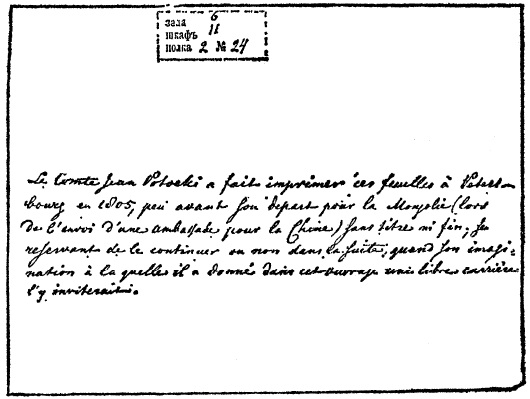 зала 6
шкафъ 11
полка 2 № 24
Le Comte Jean Potocki a fait imprimer ces feuilles à Peters-
bourg en 1805, peu avant son départ pour la Mongolie (lors
de l'envoi d'une ambassade pour la Chine) sans titre ni fin, se
reservant de le continuer ou non dans la suite, quand son imagi-
nation à la quelle il a donné dans cet ouvrage une libre carrière
l'y inviterait.